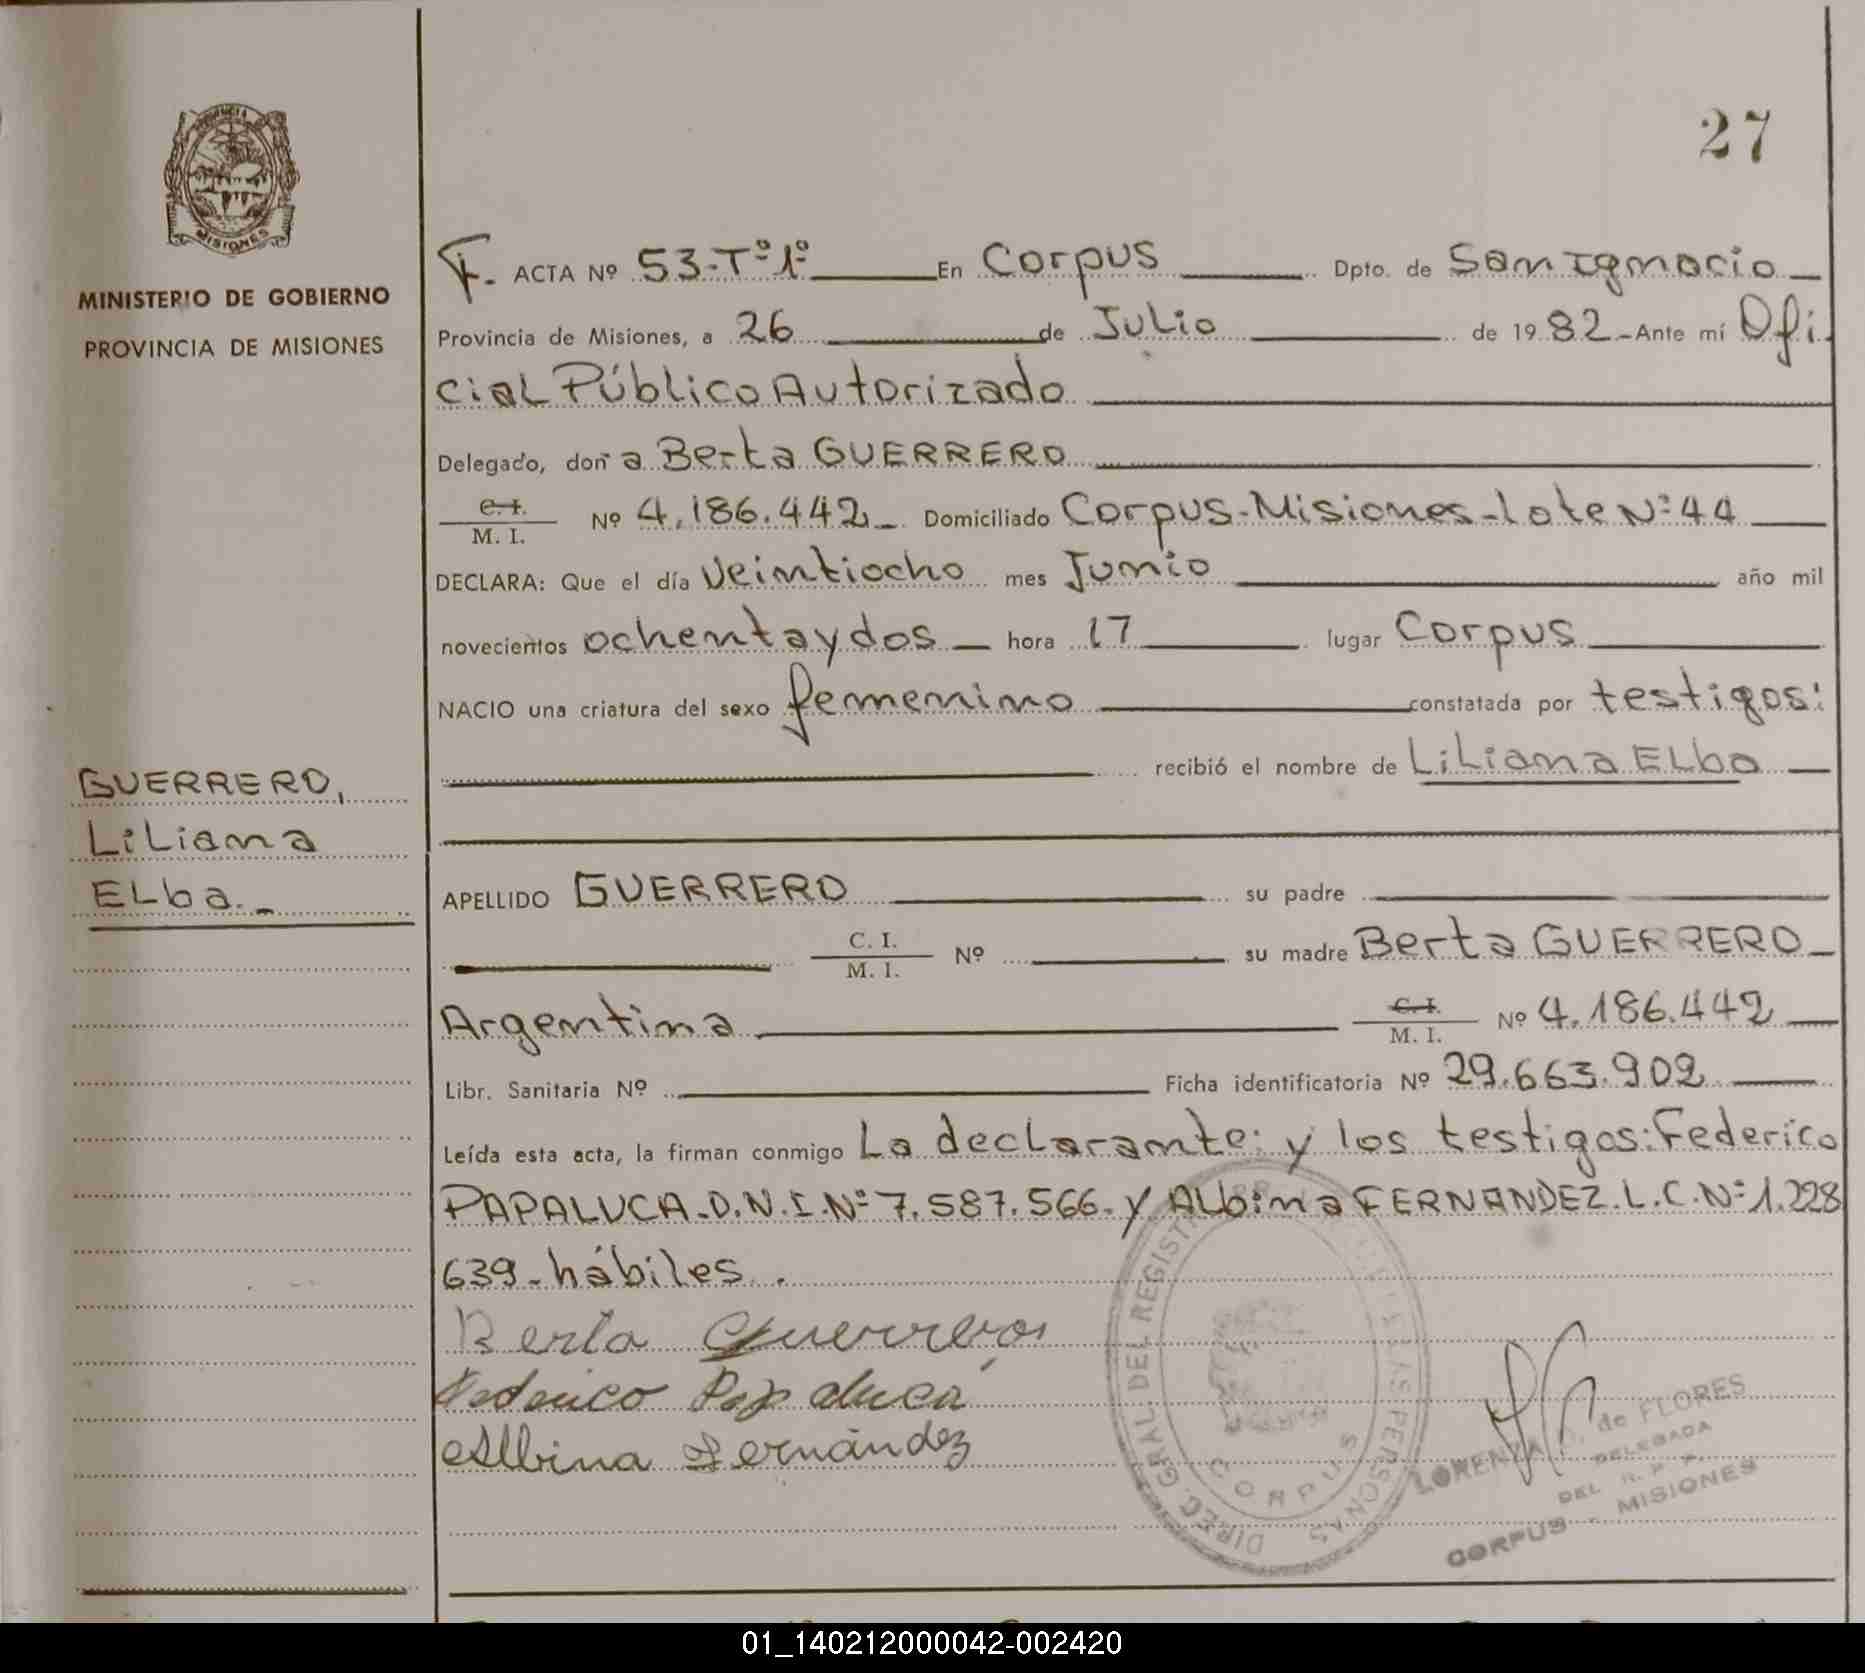 27
MISIONES
MINISTERIO DE GOBIERNO
PROVINCIA DE MISIONES
GUERRERO,
Liliana
Elba.-
F. ACTA Nº 53-Tº 1º En Corpus Dpto. de San Ignacio
Provincia de Misiones, a 26 de Julio de 1982-Ante mí Ofi
cial Público Autorizado
Delegado, doña Berta GUERRERO
C. I. / M. I. Nº 4.186.442- Domiciliado Corpus-Misiones-Lote Nº 44
DECLARA: Que el día veintiocho mes Junio año mil
novecientos ochentaydos hora 17 lugar Corpus
NACIO una criatura del sexo femenino constatada por testigos:
recibió el nombre de Liliana Elba
APELLIDO GUERRERO su padre
C. I. / M. I. Nº su madre Berta GUERRERO
Argentina C. I. / M. I. Nº 4.186.442
Libr. Sanitaria Nº Ficha identificatoria Nº 29.663.902
Leída esta acta, la firman conmigo La declarante; y los testigos: Federico
PAPALUCA-D.N.I.Nº 7.587.566. y Albina FERNANDEZ.L.C.Nº 1.228
639-hábiles.
Berta Guerrero
Federico Papaluca
Albina Fernández
DIREC. GRAL. DEL REGIST PERSONAS
CORPUS
LORENZA de FLORES
DELEGADA
DEL R. P.
CORPUS - MISIONES
01_140212000042-002420